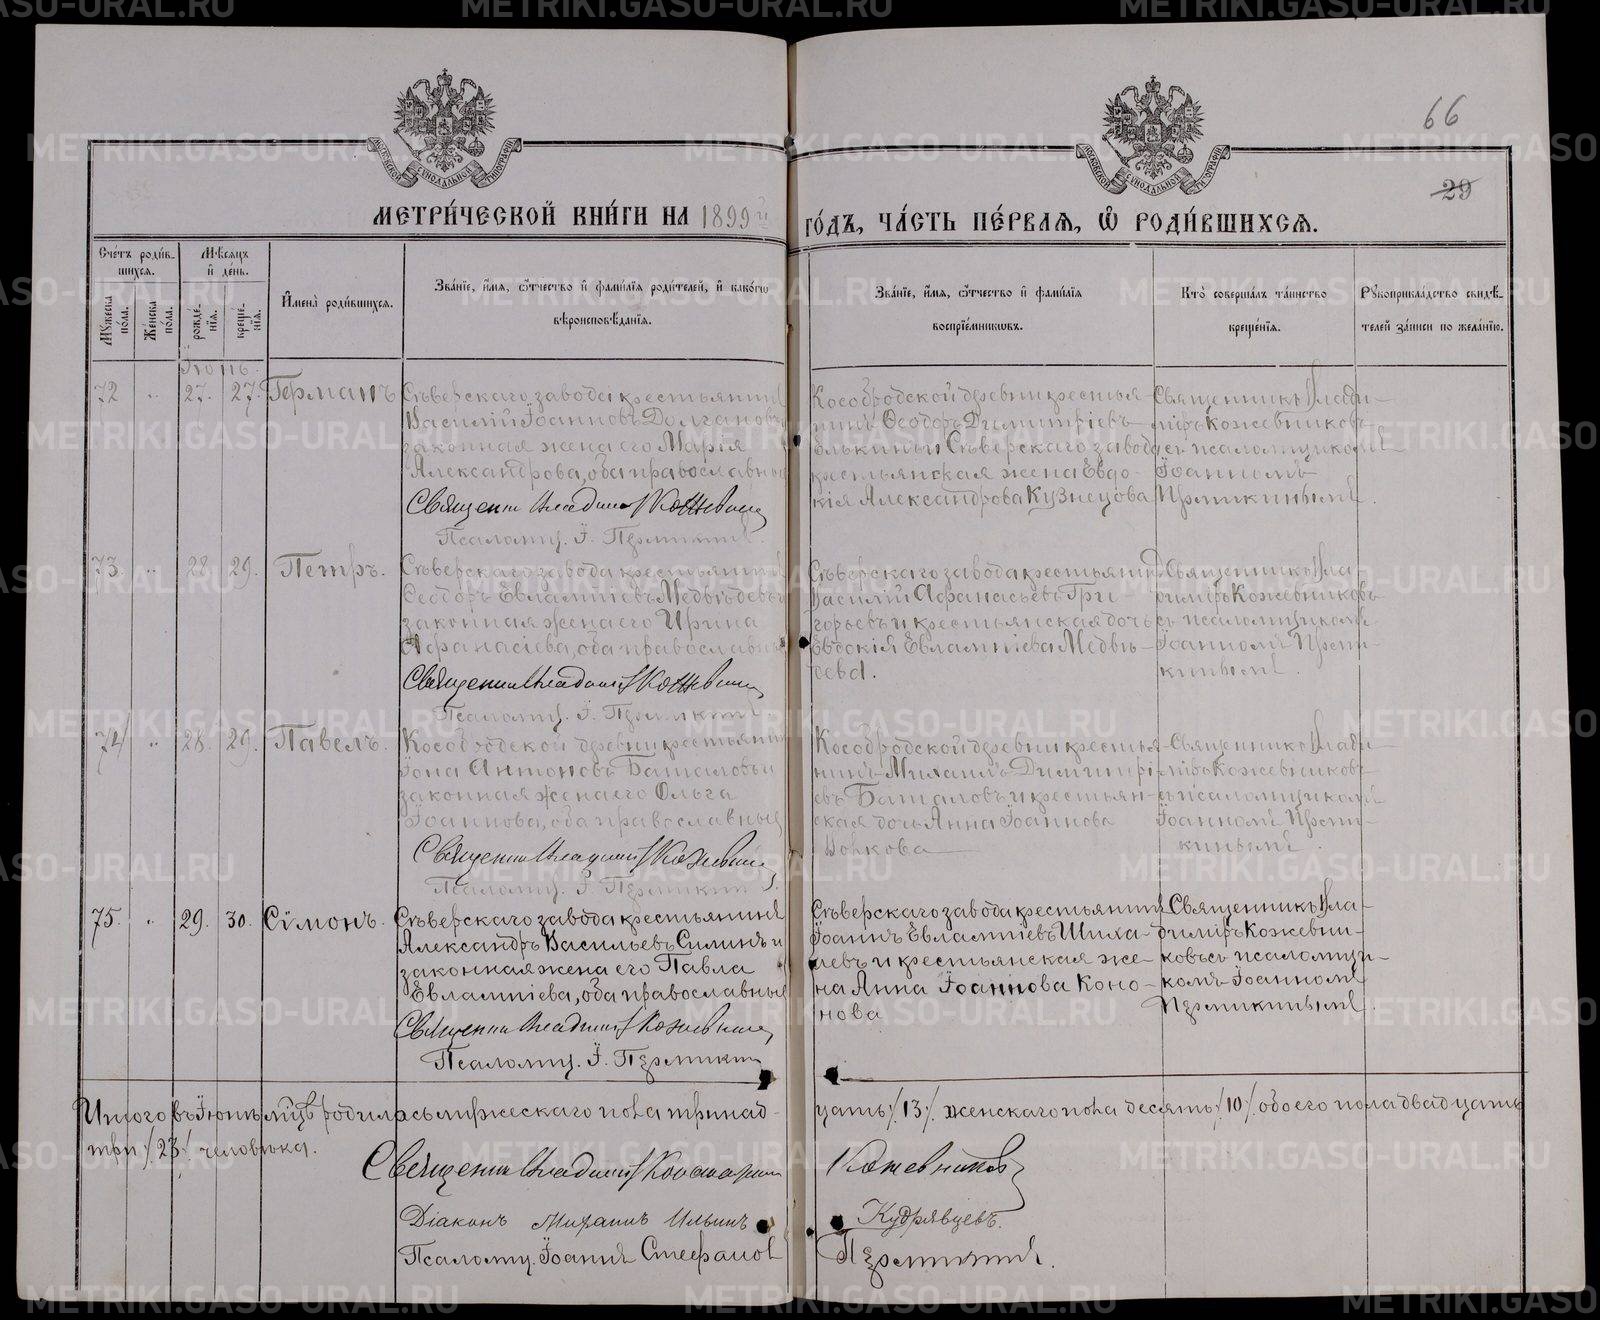 66
29
МОСКОВСКОЙ СѴНОДАЛЬНОЙ ТИПОГРАФІИ
МОСКОВСКОЙ СѴНОДАЛЬНОЙ ТИПОГРАФІИ
МЕТРИ́ЧЕСКОЙ КНИ́ГИ НА 1899й
ГО́ДЪ, ЧА́СТЬ ПЕ́РВАЯ, Ѡ РОДИ́ВШИХСЯ.
Сче́тъ роди́в-
шихся.
Мужеска по́ла.
Же́нска по́ла.
Мѣ́сяцъ
и҆ де́нь.
рожде́-
нія.
креще́-
нія.
И҆мена̀ роди́вшихся.
Зва́нїе, и҆́мя, ѻ҆́тчество и҆ фами́лїя роди́телей, и҆ како́гѡ
вѣроисповѣ́данїя.
Зва́нїе, и҆́мя, ѻ҆́тчество и҆ фами́лїя
воспрїе́мниковъ.
Кто̀ соверша́лъ та́инство
креще́нїя.
Рꙋкоприкла́дство свидѣ́-
телей за́писи по жела́нїю.
Іюнь.
72 " 27. 27. Германъ
Сѣверскаго завода крестьянинъ
Василій Іоанновъ Долгановъ
законная жена его Марія
Александрова, оба православные
Священникъ Владиміръ Кожевников
Псаломщ. І. Пермикинъ.
Кособродской деревни крестья-
нинъ Ѳеодоръ Димитріевъ
и Сѣверскаго завода
крестьянская жена Евдо-
кія Александрова Кузнецова
Священникъ Влади-
міръ Кожевниковъ
съ псаломщикомъ
Іоанномъ
Пермикинымъ.
73. " 28. 29. Петръ.
Сѣверскаго завода крестьянинъ
Ѳеодоръ Евлампіевъ Медвѣдевъ и
законная жена его Ирина
Аѳанасіева, оба православные
Священникъ Владиміръ Кожевников
Псаломщ. І. Пермикинъ
Сѣверскаго завода крестьянинъ
Василій Аѳанасьевъ Гри-
горьевъ и крестьянская дочь
Евдокія Евлампіева Медвѣ-
дева.
Священникъ Вла-
диміръ Кожевниковъ
съ псаломщикомъ
Іоанномъ Перми-
кинымъ.
74 " 28. 29. Павелъ.
Кособродской деревни крестьянинъ
Іона Антоновъ Баталовъ и
законная жена его Ольга
Іоаннова, оба православные
Священникъ Владиміръ Кожевников
Псаломщ. І. Пермикинъ.
Кособродской деревни крестья-
нинъ Михаилъ Димитрі-
евъ Баталовъ и крестьян-
ская дочь Анна Іоаннова
Волкова
Священникъ Влади-
міръ Кожевниковъ
съ псаломщикомъ
Іоанномъ Перми-
кинымъ.
75. " 29. 30. Сімонъ.
Сѣверскаго завода крестьянинъ
Александръ Васильевъ Силинъ и
законная жена его Павла
Евлампіева, оба православные
Священникъ Владиміръ Кожевников
Псаломщ. І. Пермикин
Сѣверскаго завода крестьянинъ
Іоаннъ Евлампіевъ Шиха-
левъ и крестьянская же-
на Анна Іоаннова Коно-
нова
Священникъ Вла-
диміръ Кожевни-
ковъ съ псаломщи-
комъ Іоанномъ
Пермикинымъ.
Итого въ Іюнѣ мцѣ родилось мужескаго пола тринад-
цать /13/, женскаго пола десять /10/, обоего пола двадцать
три /23/ человѣка.
Священникъ Владиміръ
Кожевников
Діаконъ Михаилъ Ильинъ
Кудрявцевъ.
Псаломщ. Іоаннъ Стефанов
Пермикинъ.